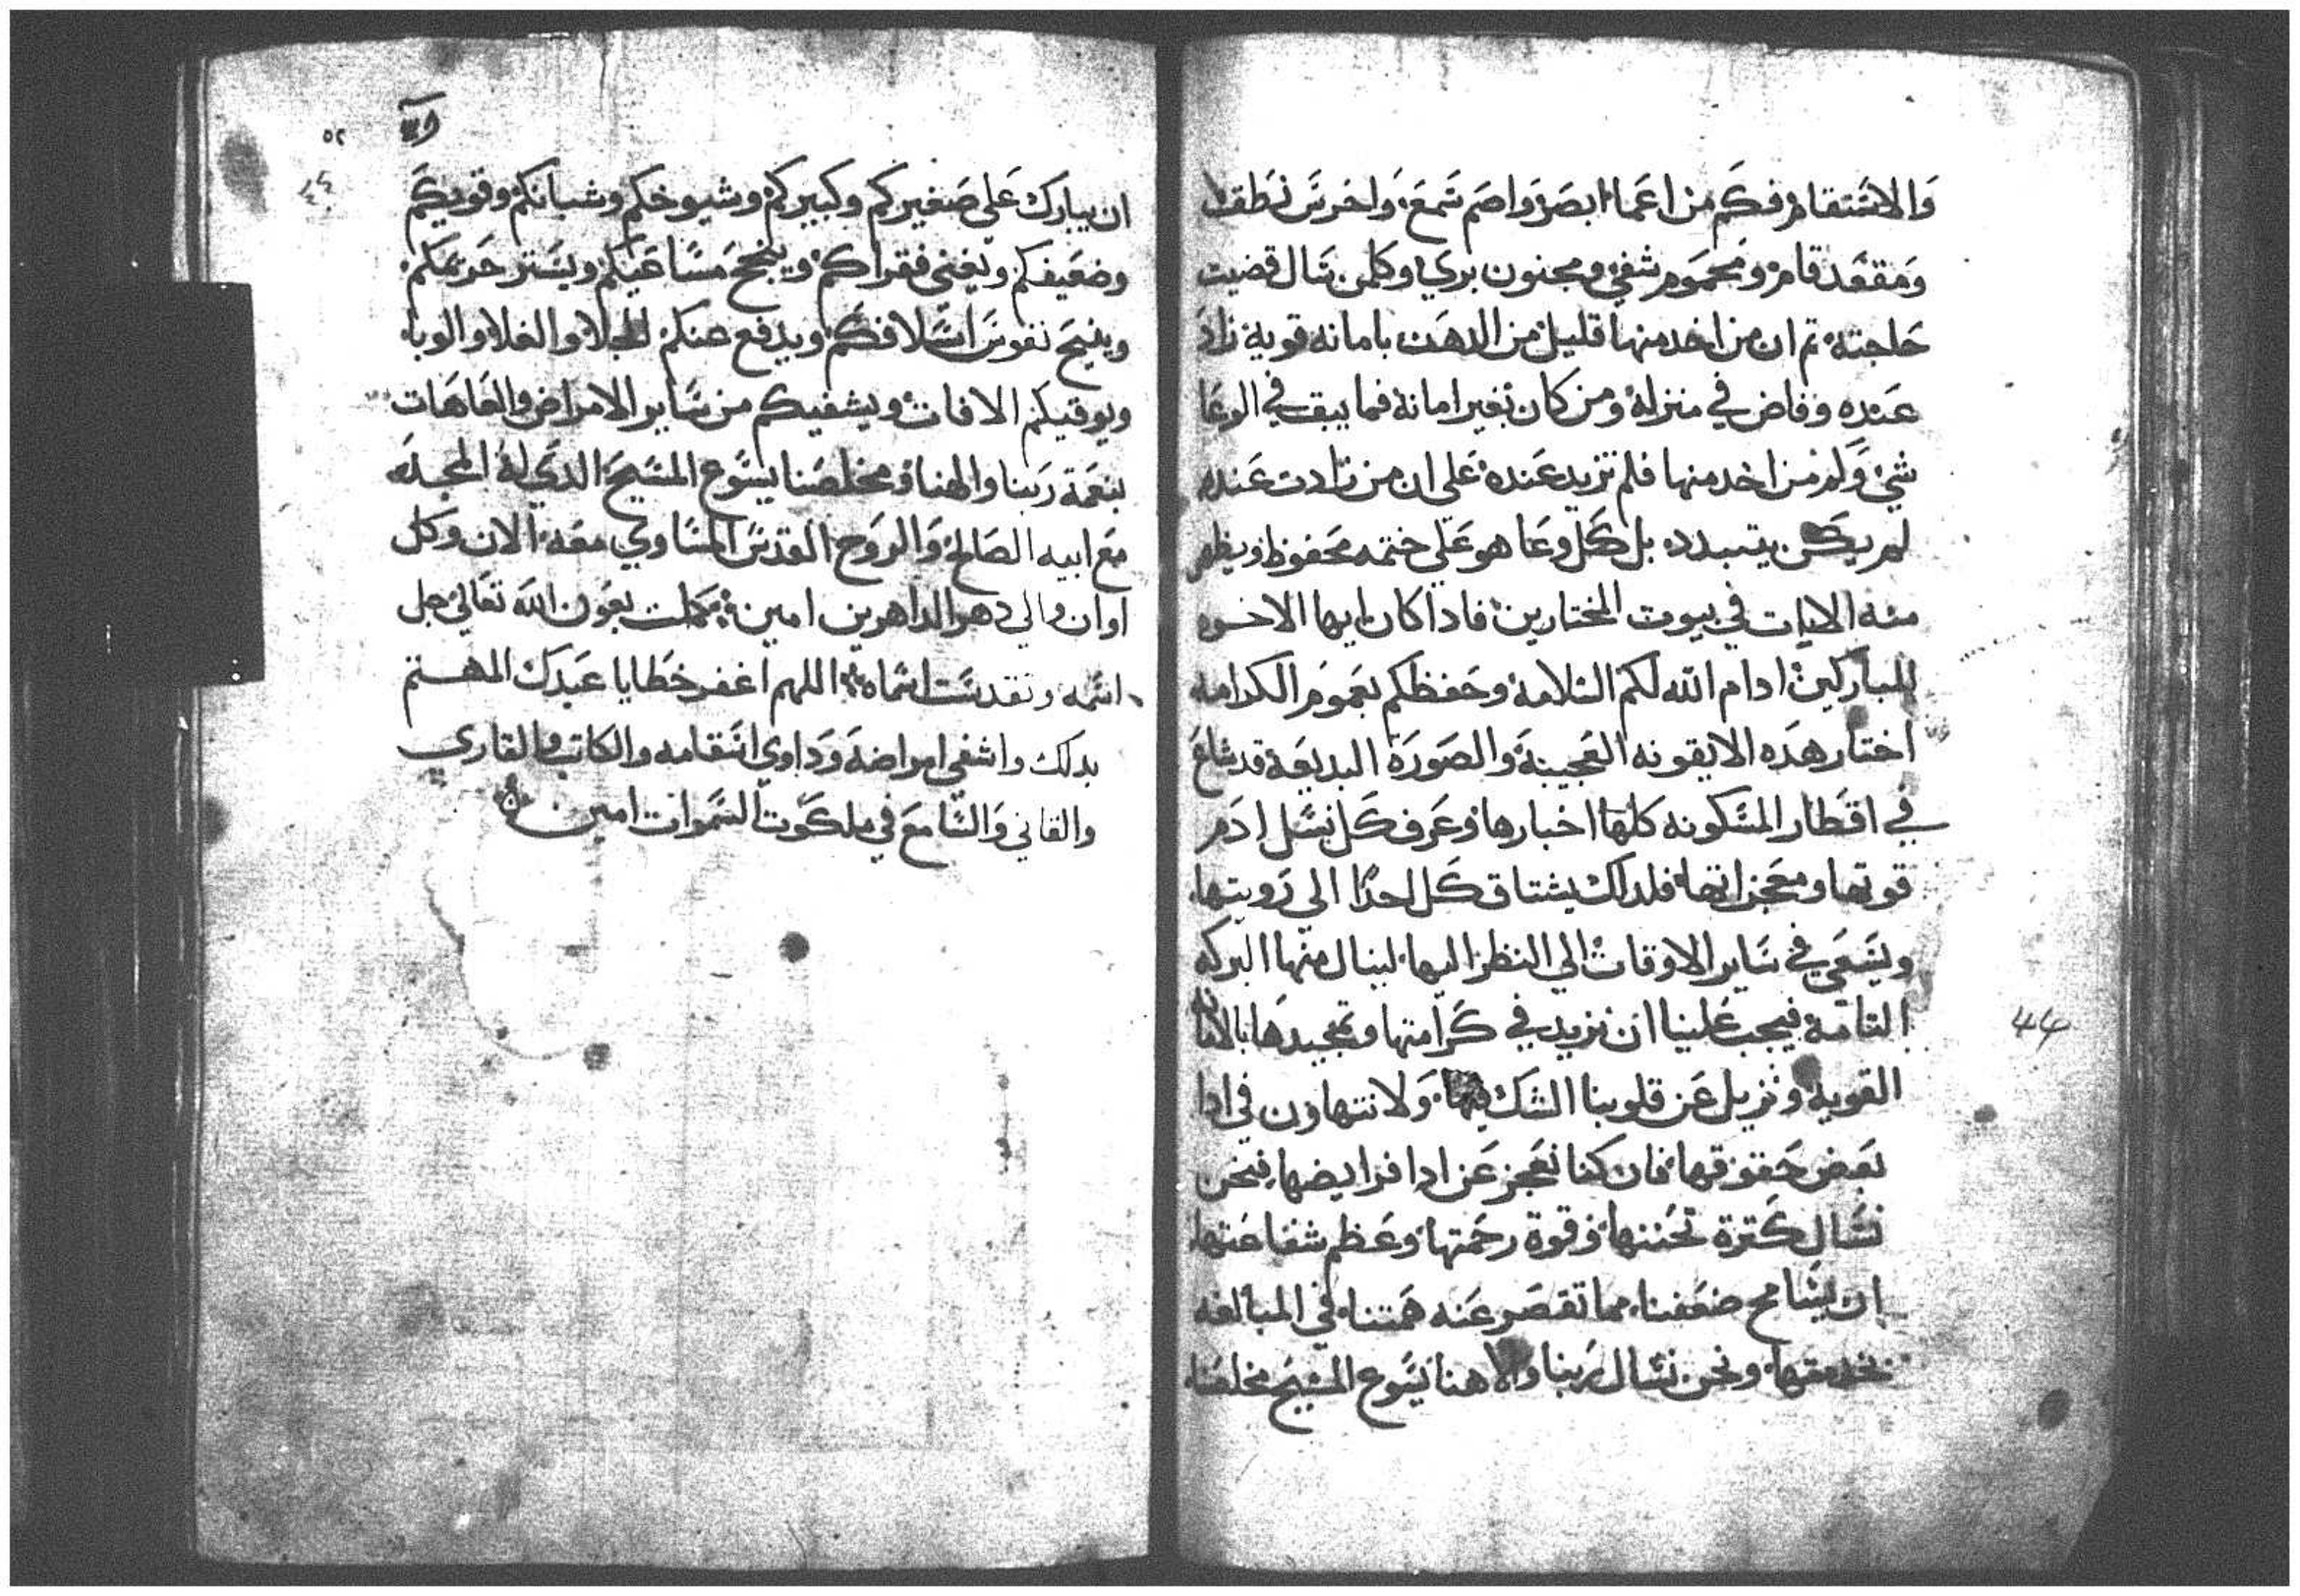 والاسقام فكم من اعما ابصر واصم سمع واخرس نطق
ومقعد قام ومحموم شفي ومجنون بري وكلمن سال قضيت
حاجته تم ان من اخد منها قليل من الدهن بامانه قوية زاد
عنده وفاض في منزله ومن كان بغير امانة فما يبق في الوعا
شي ولم من اخد منها فلم تزيد عنده علي ان من زادت عنده
لم يكن يتبدد بل كل وعا هو علي ختمه محفوظ ويظهر
منه الايات في بيوت المختارين فادا كان ايها الاخوه
المباركين ادام الله لكم السلامة وحفظكم بعموم الكرامه
اختار هده الايقونه العجيبة والصورة البديعة قد شاع
في اقطار المسكونه كلها اخبارها وعرف كل نسل ادم
قوتها ومعجزاتها فلداك يشتاق كل احدا الي رويتها
ويسعي في ساير الاوقات الي النظر اليها لينال منها البركه
التامة فيجب علينا ان نزيد في كرامتها وتمجيدها بالامانه
القوية ونزيل عن قلوبنا الشك ولا نتهاون في ادا
بعض حقوقها فان كنا نعجز عن ادا فرايضها فنحن
نسال كترة تحننها وقوة رحمتها وعظم شفاعتها
ان يسامح ضعفنا مما تقصر عنه همتنا في المبالغه
بخدمتها ونحن نسال ربنا والاهنا يسوع المسيح مخلصنا
٥٢
ان يبارك علي صغيركم وكبيركم وشيوخكم وشبانكم وقويكم
وضعيفكم ويغني فقراكم وينجح مساعيكم ويستر حريمكم
وينيح نفوس اسلافكم ويدفع عنكم الجلا والغلا والوبا
ويوقيكم الافات ويشفيكم من ساير الامراض والعاهات
بنعمة ربنا والهنا ومخلصنا يسوع المسيح الدي له المجد
مع ابيه الصالح والروح القدس المساوي معه الان وكل
اوان والي دهر الداهرين امين كملت بعون الله تعالي جل
اسمه وتقدست اسماه اللهم اغفر خطايا عبدك المهتم
بدلك واشفي امراضه وداوي اسقامه والكاتب والقاري
والقاني والسامع في ملكوت السموات امين
44